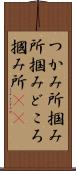 つかみ所掴み
所掴みどころ
掴み所